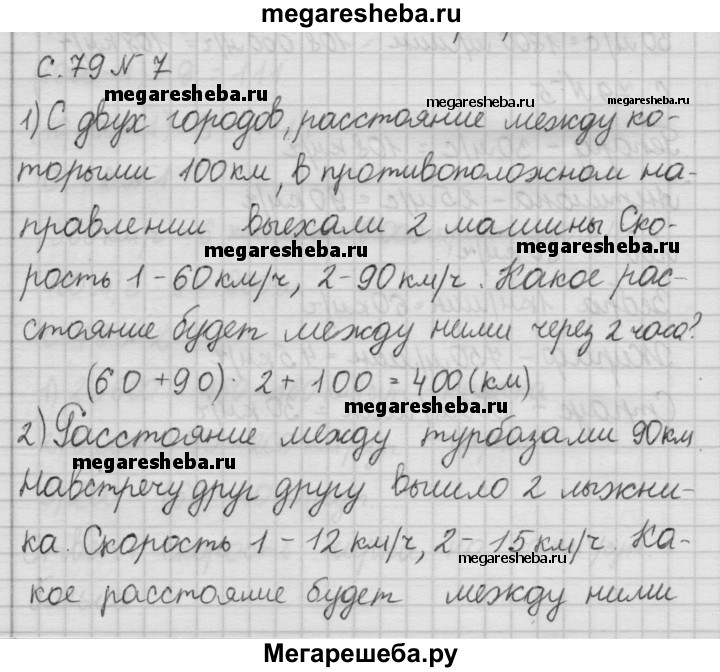 megaresheba.ru
с. 79 N 7
megaresheba.ru
megaresheba.ru
1) С двух городов, расстояние между ко-
торыми 100 км, в противоположном на-
правлении выехали 2 машины. Ско-
megaresheba.ru
megaresheba.ru
рость 1 - 60 км/ч, 2 - 90 км/ч. Какое рас-
стояние будет между ними через 2 часа?
(60 + 90) · 2 + 100 = 400 (км)
megaresheba.ru
2) Расстояние между турбазами 90 км.
megaresheba.ru
Навстречу друг другу вышло 2 лыжни-
ка. Скорость 1 - 12 км/ч, 2 - 15 км/ч. Ка-
megaresheba.ru
кое расстояние будет между ними
Мегарешеба.ру